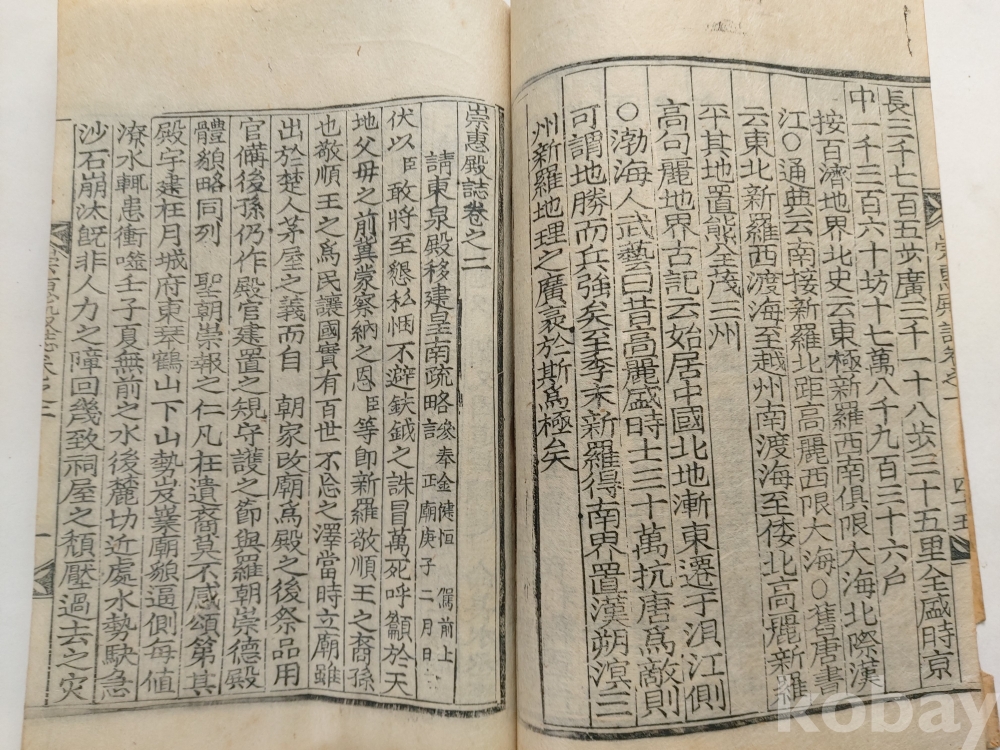 長三千七百五步廣三千一十八步三十五里全盛時京
中一千三百六十坊十七萬八千九百三十六户
按百濟地界北史云東極新羅西南俱限大海北際漢
江○通典云南接新羅北距高麗西限大海○舊唐書
云東北新羅西渡海至越州南渡海至倭北高麗新羅
平其地置熊全茂三州
高句麗地界古記云始居中國北地漸東遷于浿江側
○渤海人武藝曰昔高麗盛時士三十萬抗唐爲敵則
可謂地勝而兵強矣至季末新羅得南界置漢朔溟三
州新羅地理之廣袤於斯爲極矣
崇惠殿誌卷之一
四十五
崇惠殿誌卷之二
請東泉殿移建皇南疏略 參奉金健恒 儒前上 正廟庚子二月日
伏以臣敢將至懇私悃不避鈇鉞之誅冒萬死呼籲於天
地父母之前冀蒙察納之恩臣等卽新羅敬順王之裔孫
也敬順王之爲民讓國實有百世不忘之澤當時立廟雖
出於楚人茅屋之義而自 朝家改廟爲殿之後祭品用
官備後孫仍作殿官建置之規守護之節與羅朝崇德殿
體貌略同列 聖朝崇報之仁凡在遺裔莫不感頌第其
殿宇建在月城府東琴鶴山下山勢岌嶪廟貌逼側每値
潦水輒患衝噬壬子夏無前之水後麓切近處水勢駃急
沙石崩汰旣非人力之障回幾致祠屋之頹壓過去之灾
崇惠殿誌卷之二
一
kobay